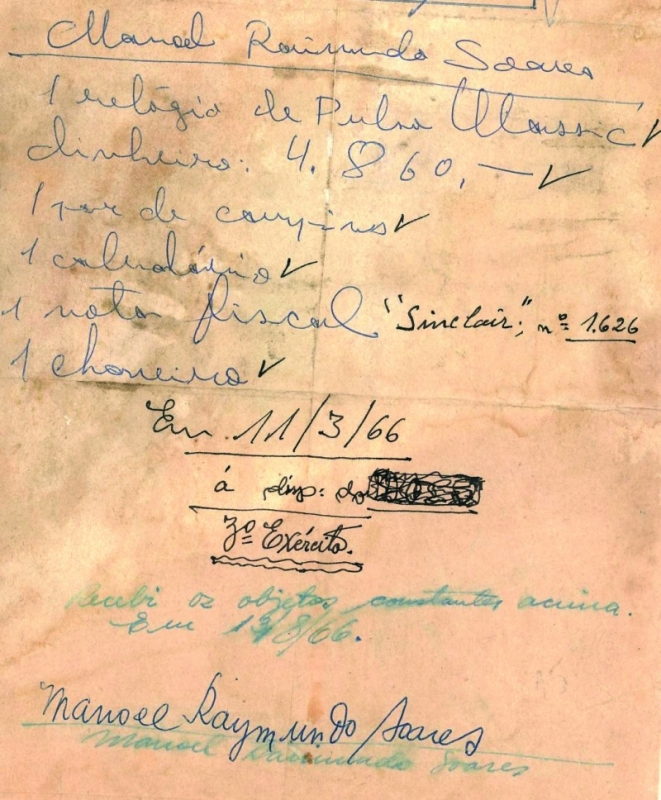 Manoel Raimundo Soares
1 relógio de Pulso Classic
dinheiro: 4.860,—
1 par de
1 calendário
1 nota fiscal "Sinclair", nº 1.626
1 chaveiro
Em. 11/3/66
á disp: do
3º Exército.
Recebi os objetos constantes acima.
Em 13/8/66.
Manoel Raymundo Soares
Manoel Raimundo Soares